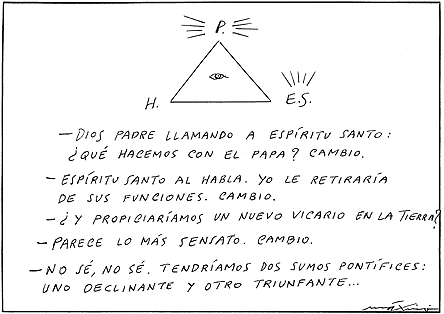 P.
H.
E.S.
– DIOS PADRE LLAMANDO A ESPÍRITU SANTO:
¿QUÉ HACEMOS CON EL PAPA? CAMBIO.
– ESPÍRITU SANTO AL HABLA. YO LE RETIRARÍA
DE SUS FUNCIONES. CAMBIO.
– ¿Y PROPICIARÍAMOS UN NUEVO VICARIO EN LA TIERRA?
– PARECE LO MÁS SENSATO. CAMBIO.
– NO SÉ, NO SÉ. TENDRÍAMOS DOS SUMOS PONTÍFICES:
UNO DECLINANTE Y OTRO TRIUNFANTE...
máximo